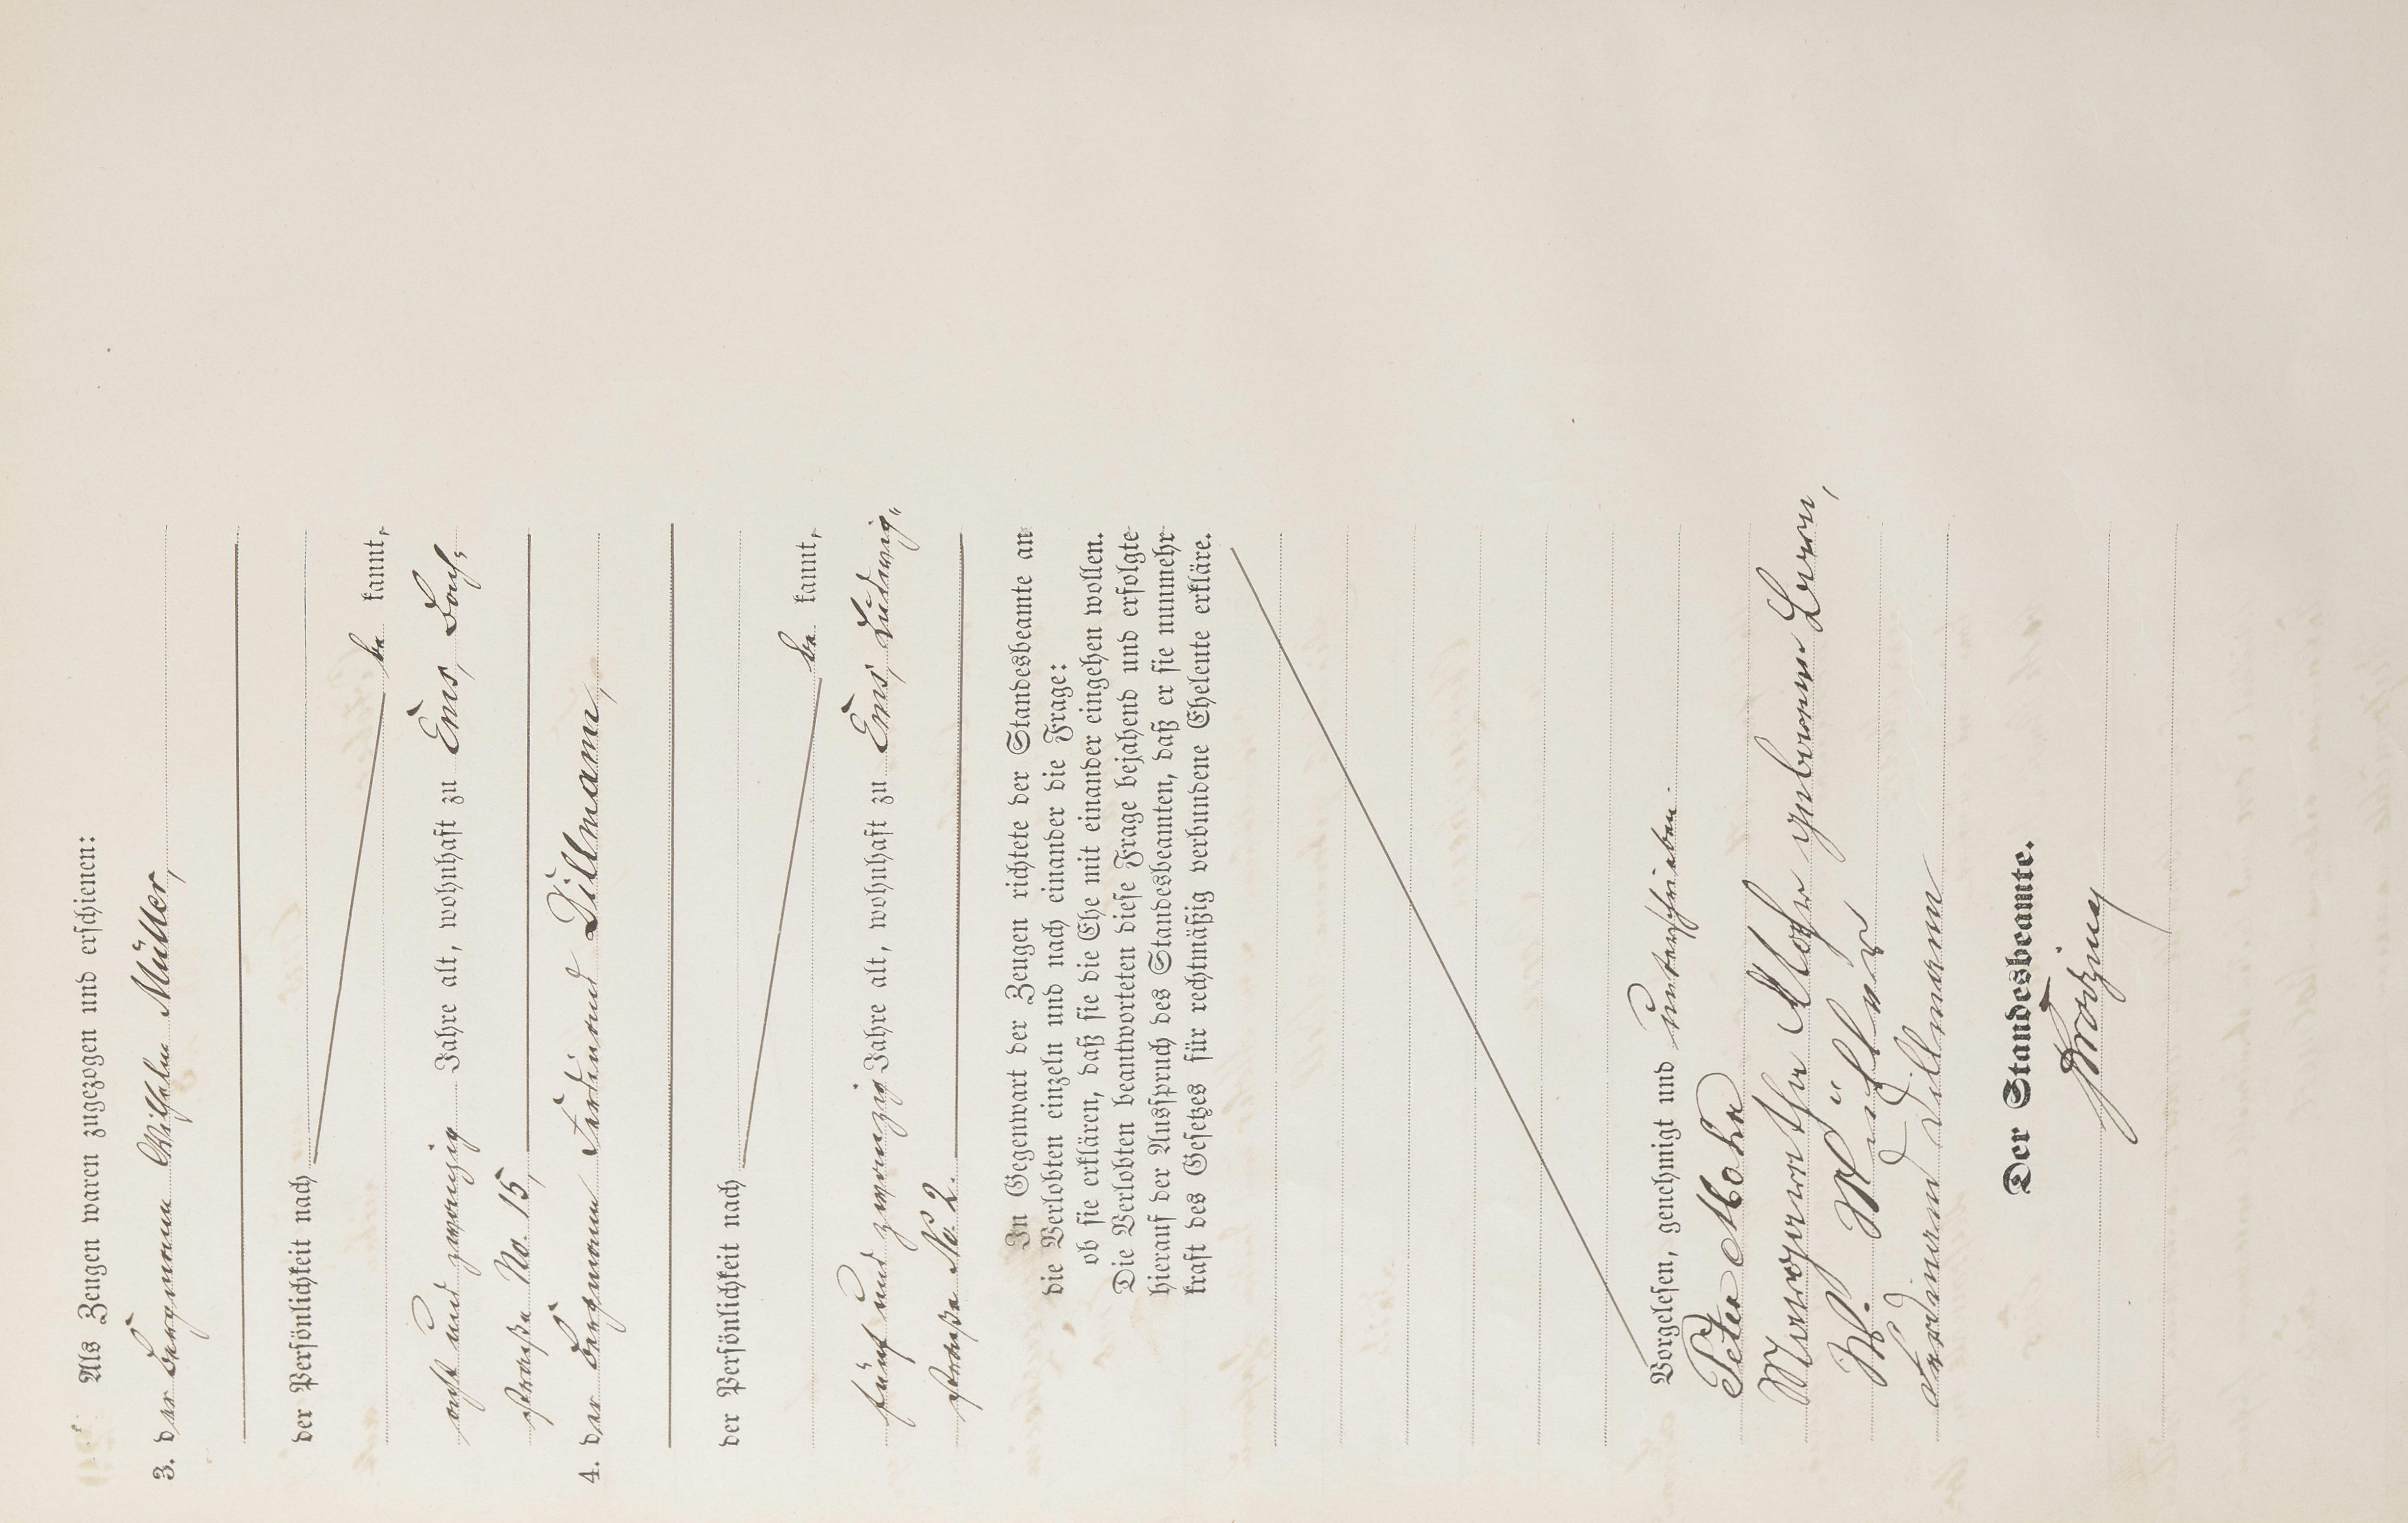 Als Zeugen waren zugezogen und erschienen:
3. der Bergmann Wilhelm Müller,
der Persönlichkeit nach
be kannt,
acht und zwanzig Jahre alt, wohnhaft zu Ems, Bach-
straße No. 15,
4. der Bergmann Ferdinand Dillmann,
der Persönlichkeit nach
be kannt,
fünf und zwanzig Jahre alt, wohnhaft zu Ems, Ludwig-
straße No. 2.
In Gegenwart der Zeugen richtete der Standesbeamte an
die Verlobten einzeln und nach einander die Frage:
ob sie erklären, daß sie die Ehe mit einander eingehen wollen.
Die Verlobten beantworteten diese Frage bejahend und erfolgte
hierauf der Ausspruch des Standesbeamten, daß er sie nunmehr
kraft des Gesetzes für rechtmäßig verbundene Eheleute erkläre.
Vorgelesen, genehmigt und unterschrieben.
Peter Mohr
Margarethe Mohr geborene
W. Müller
Ferdinand Dillmann
Der Standesbeamte.